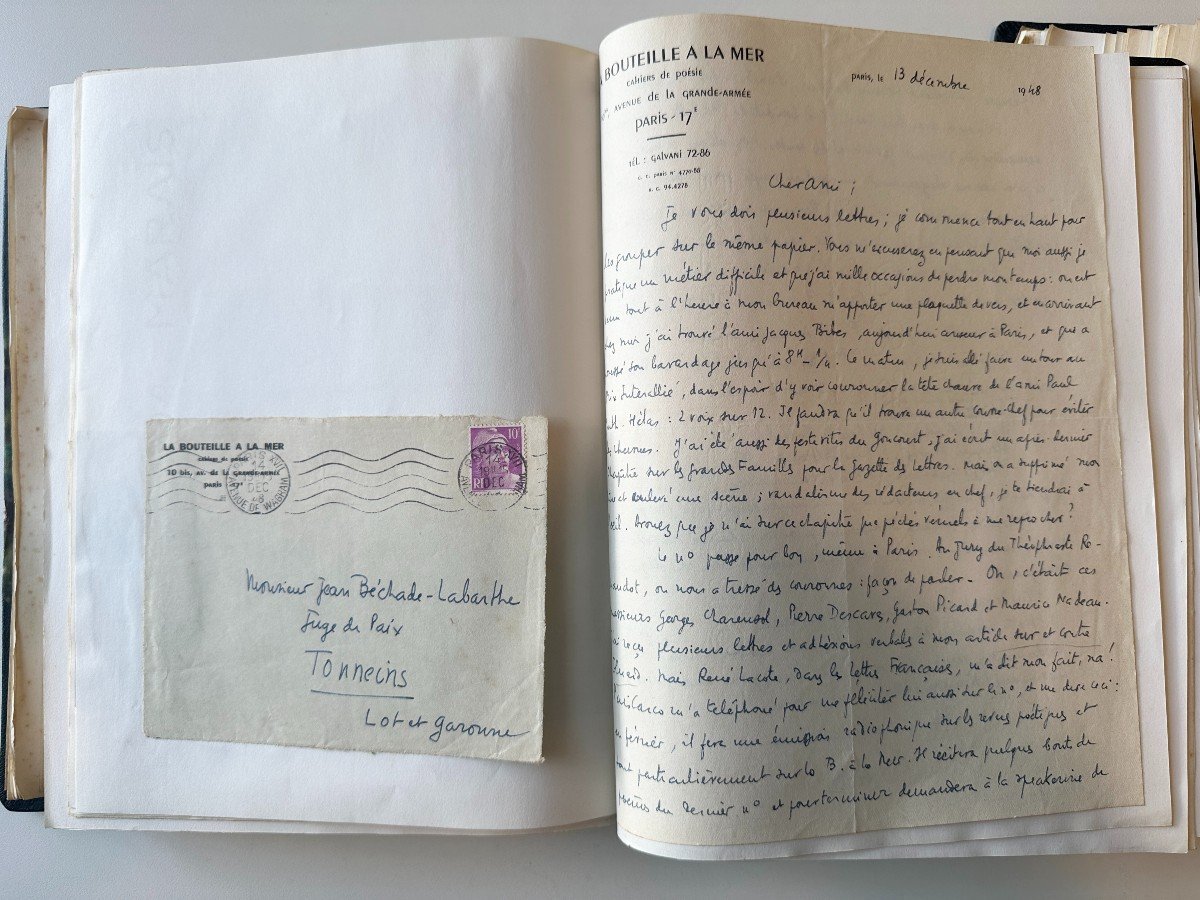 LA BOUTEILLE A LA MER
cahiers de poésie
10 bis, av. de la GRANDE-ARMÉE
PARIS 17e
14
DEC
48
AVENUE DE WAGRAM
10F
RF
PARIS XVII
DEC
Monsieur Jean Béchade-Labarthe
Juge de Paix
Tonneins
Lot et Garonne
LA BOUTEILLE A LA MER
cahiers de poésie
AVENUE DE LA GRANDE-ARMÉE
PARIS - 17E
TÉL. : GALVANI 72-86
C. C. PARIS N° 4770-88
R. C. 94.4278
PARIS, le 13 décembre 1948
Cher Ami ;
Je vous dois plusieurs lettres ; je commence tout en haut pour
les grouper sur le même papier. Vous m'excuserez en pensant que moi aussi je
pratique un métier difficile et que j'ai mille occasions de perdre mon temps : on est
venu tout à l'heure à mon bureau m'apporter une plaquette de vers, et en arrivant
chez moi j'ai trouvé l'ami Jacques Bibes, aujourd'hui à Paris, et qui a
poussé son bavardage jusqu'à 8H-1/4. Ce matin, je suis allé faire un tour au
Prix Interallié, dans l'espoir d'y voir couronner la tête chauve de l'ami Paul
Hélas : 2 voix sur 12. Il faudra qu'il trouve un autre couvre-chef pour éviter
les rhumes. J'ai été aussi des festivités du Goncourt, j'ai écrit un après-dernier
chapitre sur les Grandes Familles pour la Gazette des lettres. Mais on a supprimé mon
et enlevé une scène ; vandalisme des rédacteurs en chef, je te tiendrai à
l'œil. Avouez que je n'ai sur ce chapitre que péchés véniels à me reprocher ?
Le n° passe pour bon, même à Paris. Au Jury du Théophraste Re-
naudot, on nous a tressé des couronnes : façon de parler. Oh, c'était ces
messieurs Georges Charensol, Pierre Descaves, Gaston Picard et Maurice Nadeau.
J'ai reçu plusieurs lettres et adhésions verbales à mon article sur et contre
Éluard. Mais René Lacote, dans les lettres Françaises, m'a dit mon fait, na !
m'a téléphoné pour me féliciter lui aussi sur le n°, et me dire ceci :
en février, il fera une émission radiophonique sur les revues poétiques et
tout particulièrement sur la B. à la Mer. Il récitera quelques bouts de
poèmes du dernier n° et pour terminer demandera à la speakerine de